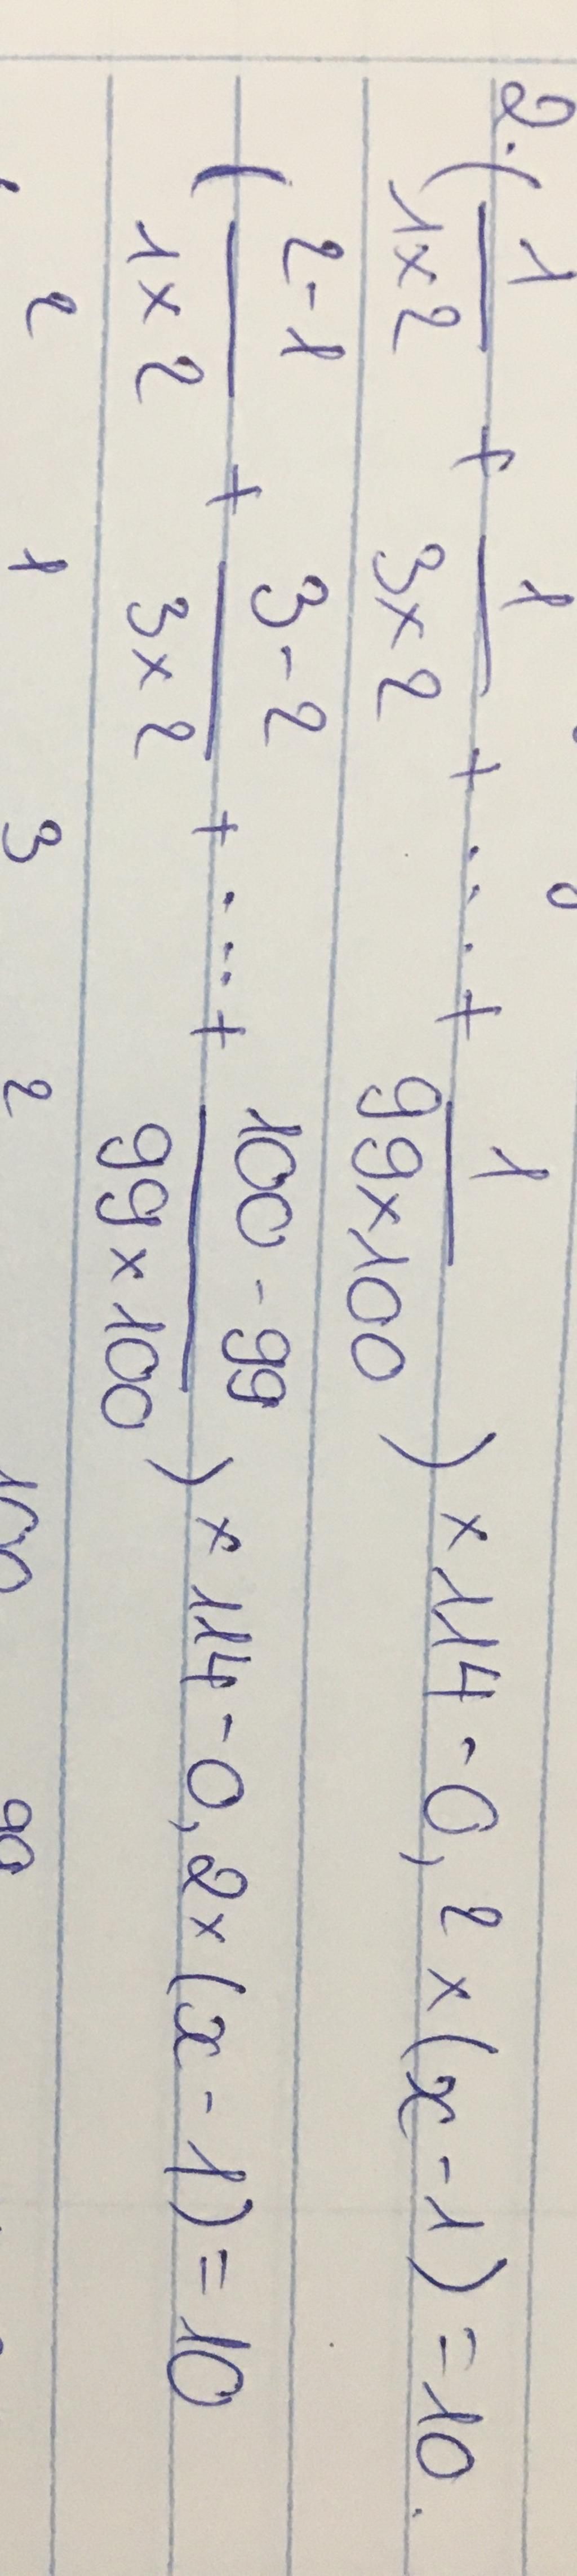 2. ( 1/1x2 + 1/3x2 + ... + 1/99x100 ) x 114 - 0,2 x (x - 1) = 10.
( 2-1/1x2 + 3-2/3x2 + ... + 100-99/99x100 ) x 114 - 0,2 x (x - 1) = 10
2 1 3 2 100 99